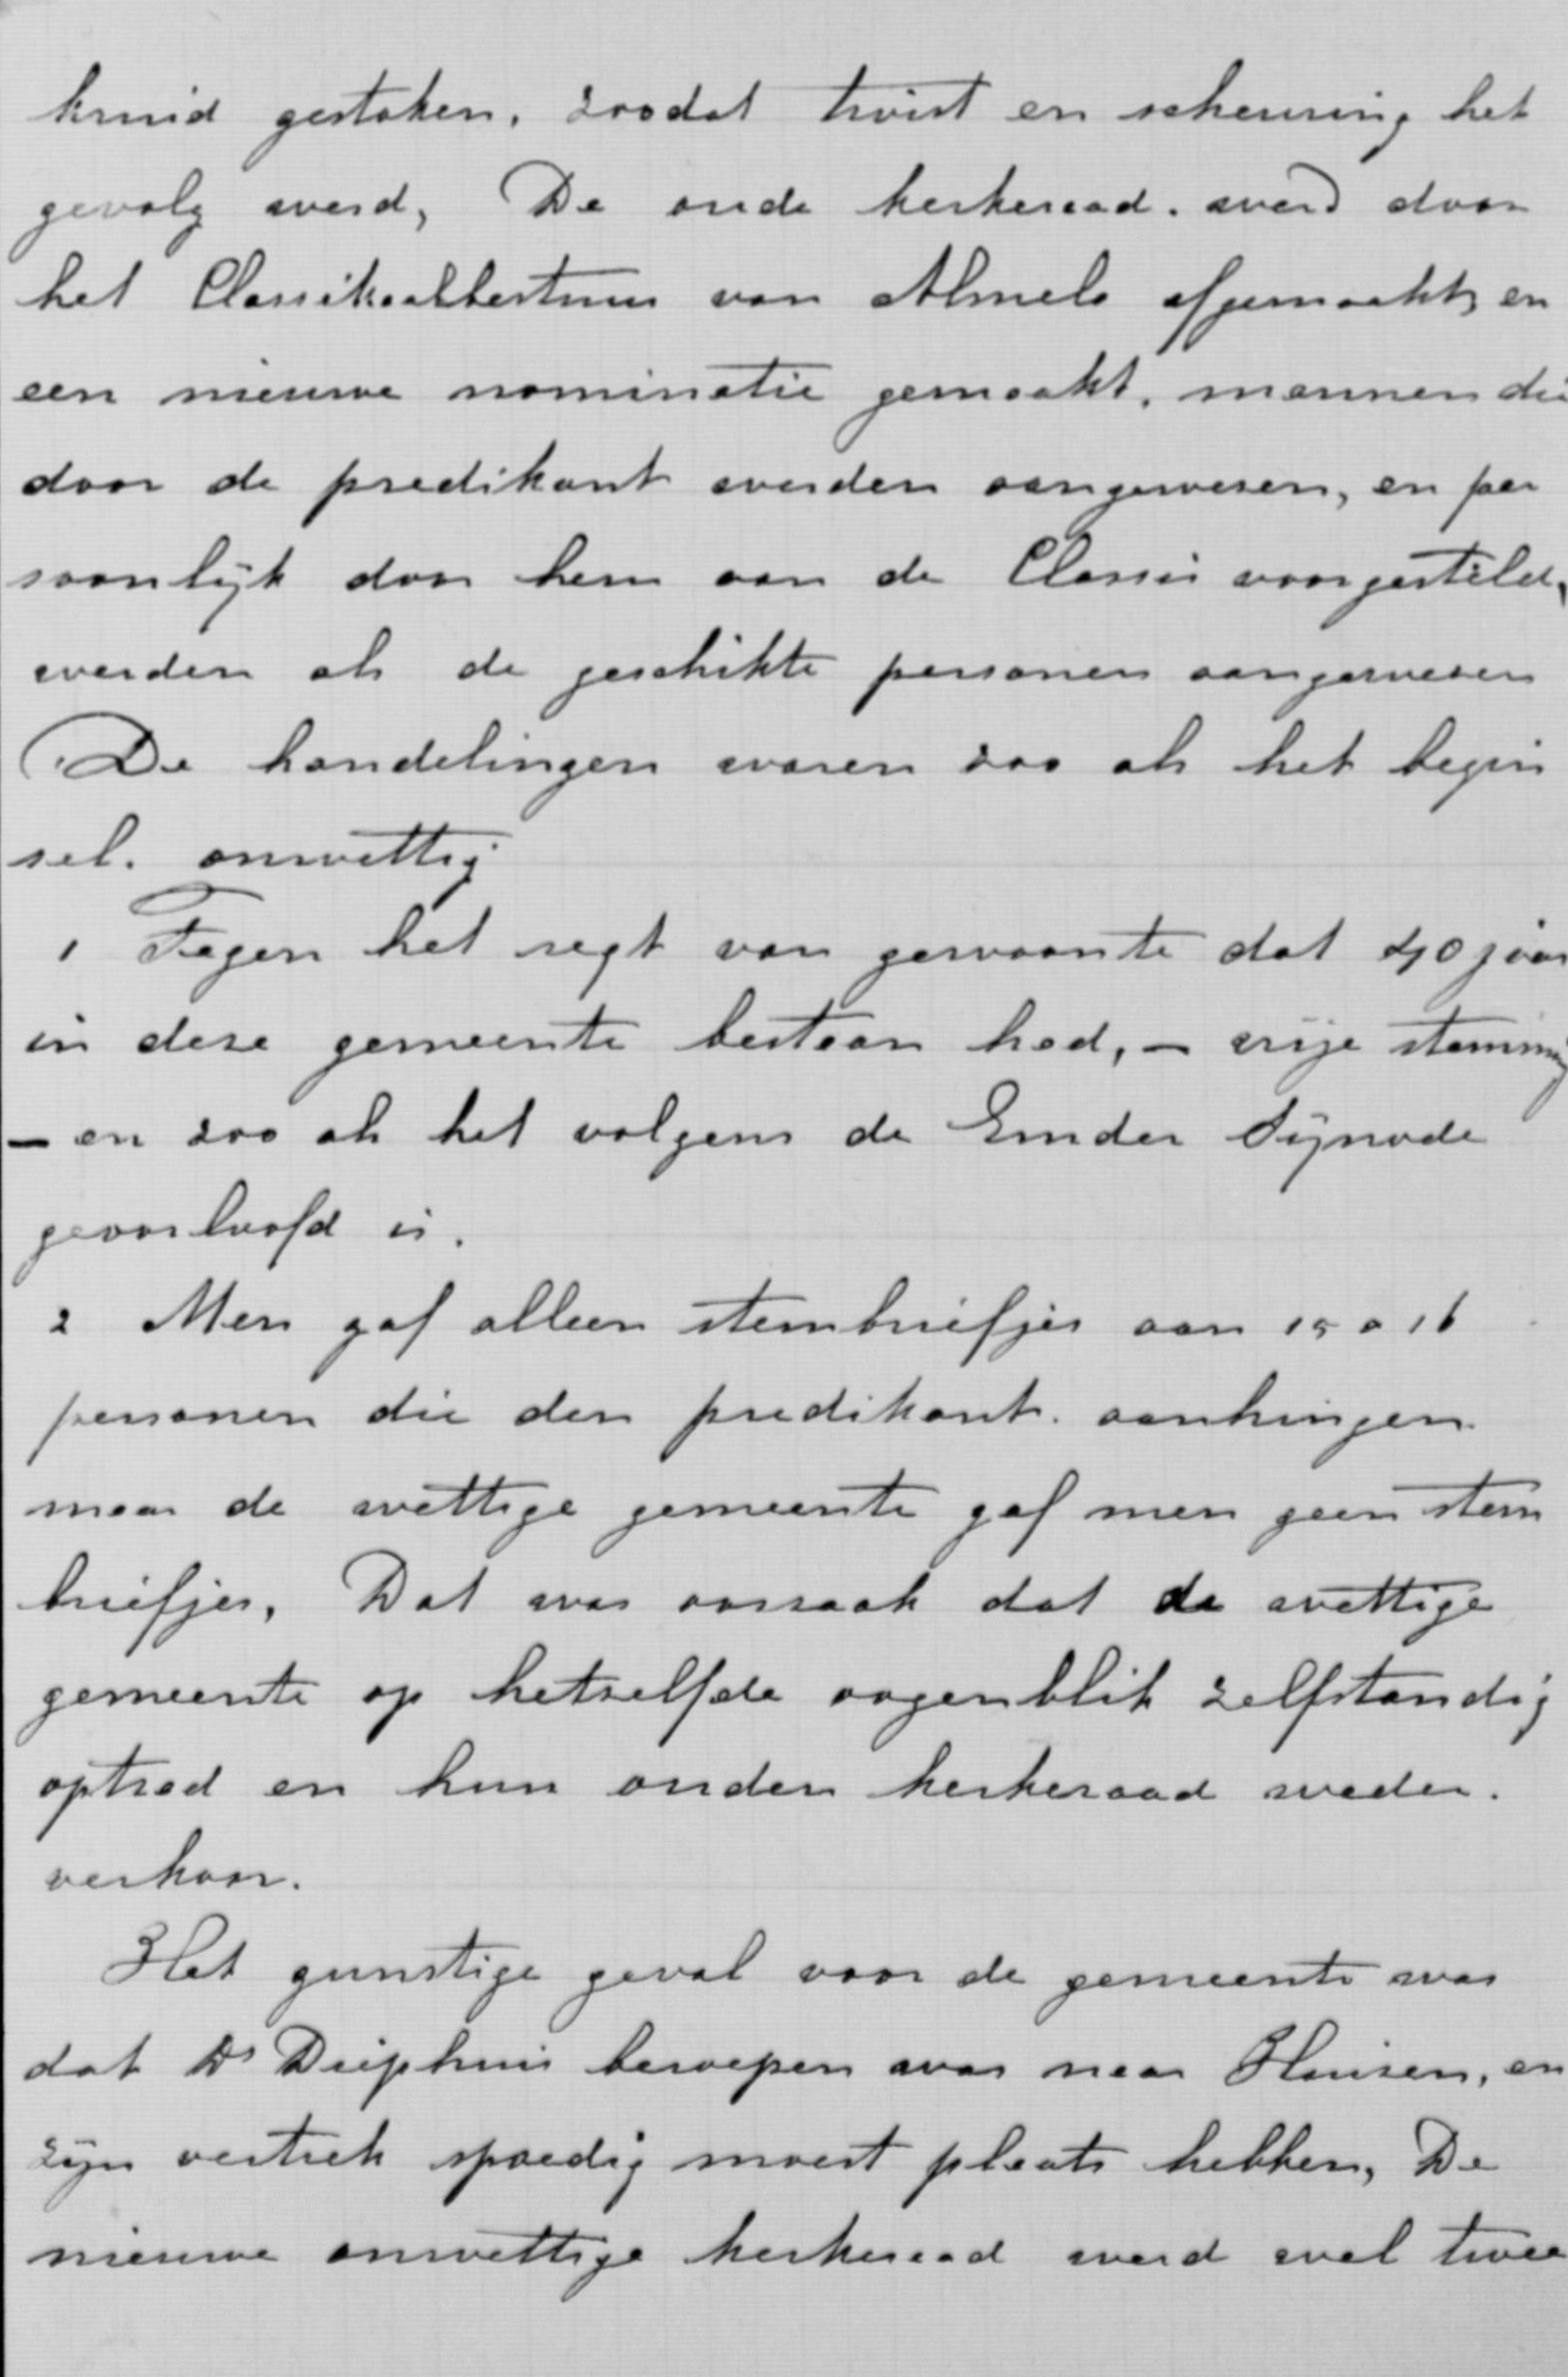 kruid gestoken, zoodat twist en scheuring het
gevolg werd, De oude kerkeraad. werd door
het Classikaalbestuur van Almelo afgemaakt, en
een nieuwe nominatie gemaakt, mannen die
door de predikant werden aangewesen, en per
soonlijk door hem aan de Classis voorgesteld,
werden als de geschikte personen aangewesen
De handelingen waren zoo als het begin
sel. onwettig
1 Tegen het regt van gewoonte dat 40 jaar
in deze gemeente bestaan had, – vrije stemming
– en zoo als het volgens de Emder Sijnode
geoorloofd is.
2 Men gaf alleen stembriefjes aan 15 a 16
personen die den predikant. aanhingen
maar de wettige gemeente gaf men geen stem
briefjes, Dat was oorzaak dat de wettige
gemeente op hetzelfde oogenblik zelfstandig
optrad en hun ouden kerkeraad weder.
verkoor.
Het gunstige geval voor de gemeente was
dat Ds Duiphuis beroepen was naar Huisen, en
zijn vertrek spoedig moest plaats hebben, De
nieuwe onwettige kerkeraad werd wel twee